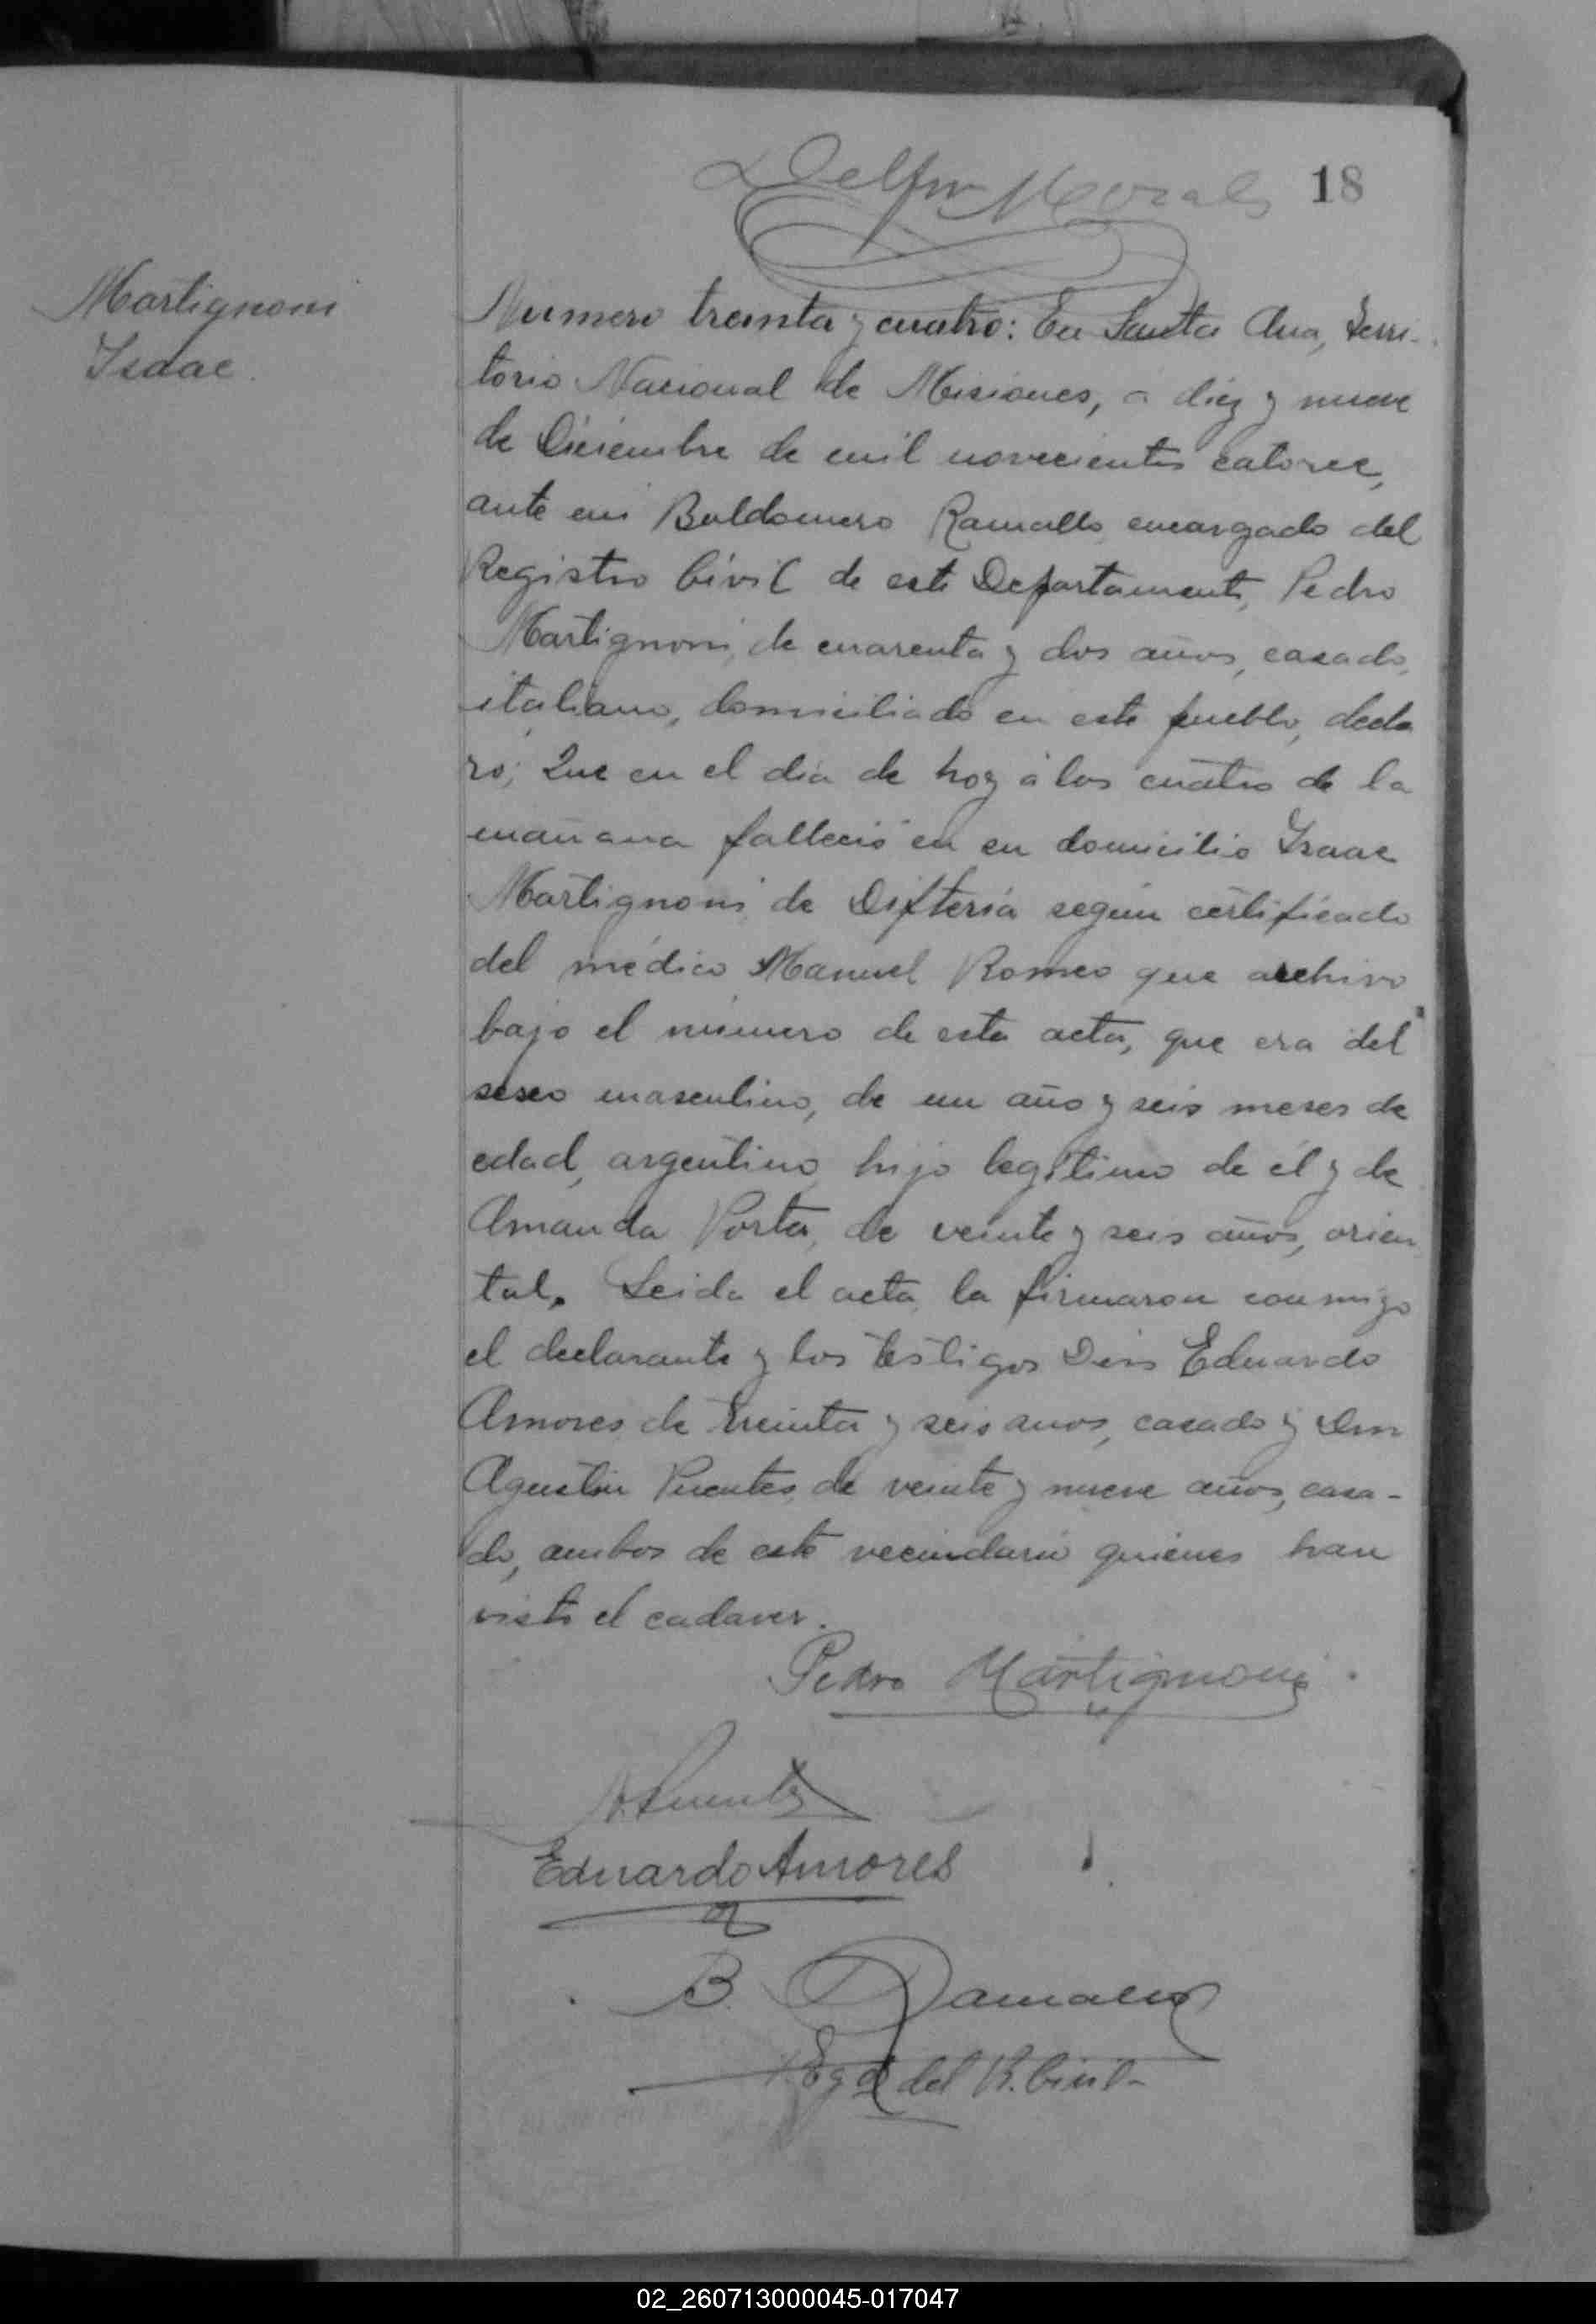 Delfin Morales
18
Martignoni
Isaac
Numero treinta y cuatro: En Santa Ana, Terri-
torio Nacional de Misiones, á diez y nueve
de Diciembre de mil novecientos catorce,
ante mi Baldomero Ramallo encargado del
Registro Civil de este Departamento, Pedro
Martignoni, de cuarenta y dos años, casado,
italiano, domiciliado en este pueblo, decla
ró; Que en el dia de hoy á las cuatro de la
mañana falleció en su domicilio Isaac
Martignoni de Difteria según certificado
del médico Manuel Romeo que archivo
bajo el número de esta acta, que era del
sexo masculino, de un año y seis meses de
edad, argentino, hijo legítimo de él y de
Amanda Porta, de veinte y seis años, orien
tal. Leida el acta la firmaron conmigo
el declarante y los testigos Don Eduardo
Amores de treinta y seis años, casado y Don
Agustin Puentes de veinte y nueve años, casa-
do, ambos de este vecindario quienes han
visto el cadaver.
Pedro Martignoni
A. Puentes
Eduardo Amores
B. Ramallo
Egdo del R. Civil-
02_260713000045-017047